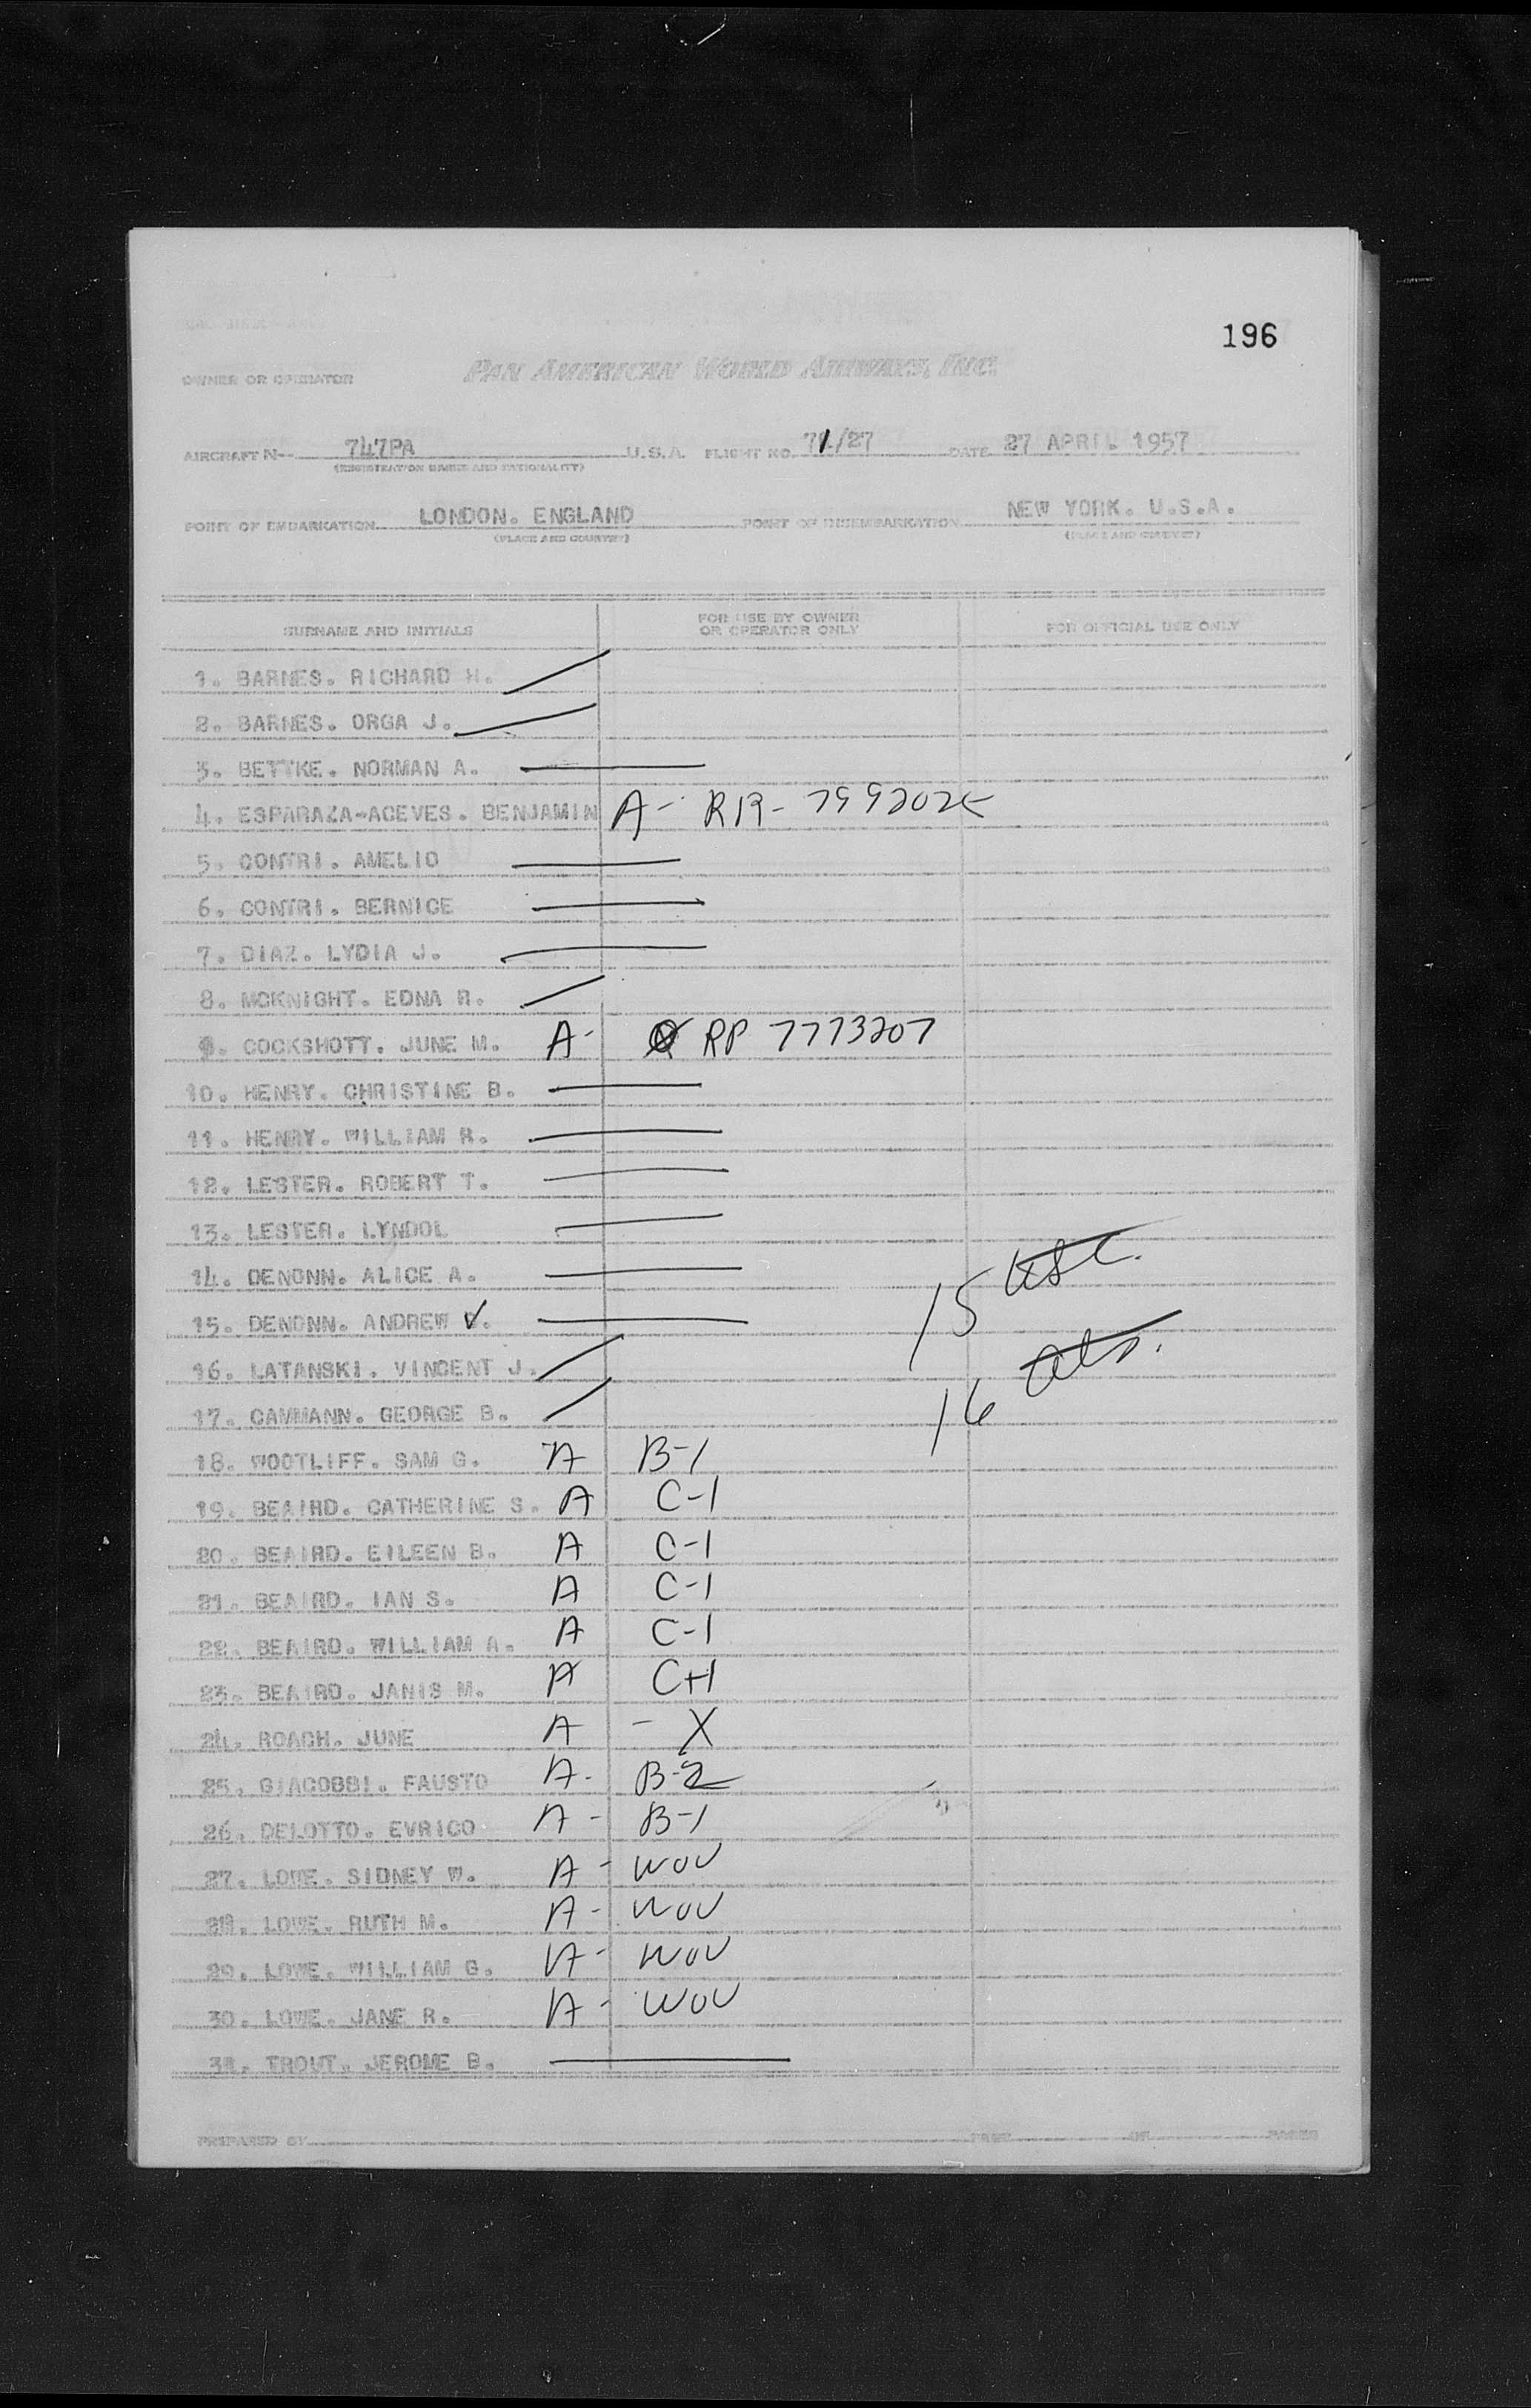 196
OWNER OR OPERATOR PAN AMERICAN WORLD AIRWAYS, INC.
AIRCRAFT N-- 747PA U.S.A. FLIGHT NO. 71/27 DATE 27 APRIL 1957
(REGISTRATION MARKS AND NATIONALITY)
POINT OF EMBARKATION LONDON. ENGLAND POINT OF DISEMBARKATION NEW YORK. U.S.A.
(PLACE AND COUNTRY) (PLACE AND COUNTRY)
SURNAME AND INITIALS FOR USE BY OWNER OR OPERATOR ONLY FOR OFFICIAL USE ONLY
1. BARNES. RICHARD H.
2. BARNES. ORGA J.
3. BETTKE. NORMAN A.
4. ESPARAZA-ACEVES. BENJAMIN A-
5. CONTRI. AMELIO
6. CONTRI. BERNICE
7. DIAZ. LYDIA J.
8. MCKNIGHT. EDNA R.
9. COCKSHOTT. JUNE M. A- RP 7773207
10. HENRY. CHRISTINE B.
11. HENRY. WILLIAM R.
12. LESTER. ROBERT T.
13. LESTER. LYNDOL
14. DENONN. ALICE A.
15 usc.
15. DENONN. ANDREW V.
16. LATANSKI. VINCENT J.
16 als.
17. CAMMANN. GEORGE B.
18. WOOTLIFF. SAM G. A B-1
19. BEAIRD. CATHERINE S. A C-1
20. BEAIRD. EILEEN B. A C-1
21. BEAIRD. IAN S. A C-1
22. BEAIRD. WILLIAM A. A C-1
23. BEAIRD. JANIS M. A C-1
24. ROACH. JUNE A - X
25. GIACOBBI. FAUSTO A- B-2
26. DELOTTO. EVRICO A- B-1
27. LOWE. SIDNEY W. A- WOV
28. LOWE. RUTH M. A- WOV
29. LOWE. WILLIAM G. A- WOV
30. LOWE. JANE R. A- WOV
31. TROUT. JEROME B.
PREPARED BY PAGE OF PAGES